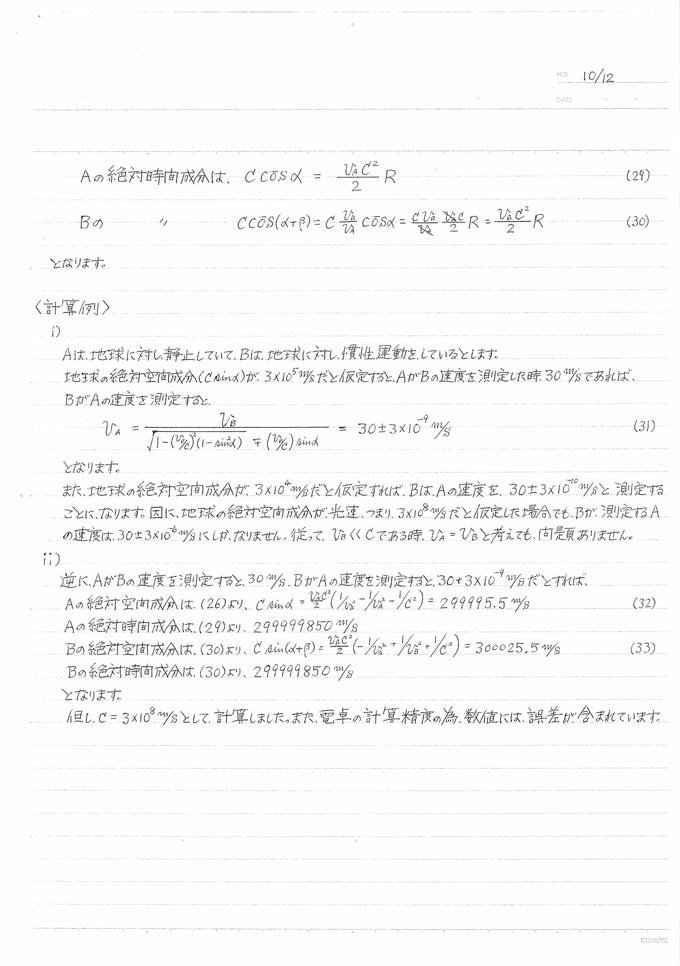 NO. 10/12
DATE
Aの絶対時間成分は、 C cos α = (v_A C²/2) R (29)
Bの 〃 C cos(α+β) = C (v_B/v_A) cos α = (C v_B/v_A) (v_A C/2) R = (v_B C²/2) R (30)
となります。
〈計算例〉
i)
Aは、地球に対し、静止していて、Bは、地球に対し、慣性運動をしているとします。
地球の絶対空間成分(C sin α)が、3×10⁵ m/sだと仮定すると、AがBの速度を測定した時、30 m/sであれば、
BがAの速度を測定すると、
v_A = v_B / (√(1-(v_B/C)²(1-sin²α)) ∓ (v_B/C) sin α) = 30±3×10⁻⁹ m/s (31)
となります。
また、地球の絶対空間成分が、3×10⁴ m/sだと仮定すれば、Bは、Aの速度を、30±3×10⁻¹⁰ m/sと、測定する
ことに、なります。因に、地球の絶対空間成分が、光速、つまり、3×10⁸ m/sだと仮定した場合でも、Bが、測定するA
の速度は、30±3×10⁻⁶ m/sにしか、なりません。従って、v_B<<Cである時、v_A=v_Bと考えても、問題ありません。
ii)
逆に、AがBの速度を測定すると、30 m/s、BがAの速度を測定すると、30+3×10⁻⁹ m/sだとすれば、
Aの絶対空間成分は、(26)より、C sin α = (v_A C²/2)(1/v_B² - 1/v_A² - 1/C²) = 299995.5 m/s (32)
Aの絶対時間成分は、(29)より、299999850 m/s
Bの絶対空間成分は、(30)より、C sin(α+β) = (v_B C²/2)(-1/v_A² + 1/v_B² + 1/C²) = 300025.5 m/s (33)
Bの絶対時間成分は、(30)より、299999850 m/s
となります。
但し、C = 3×10⁸ m/sとして、計算しました。また、電卓の計算精度の為、数値には、誤差が含まれています。
KOKUYO